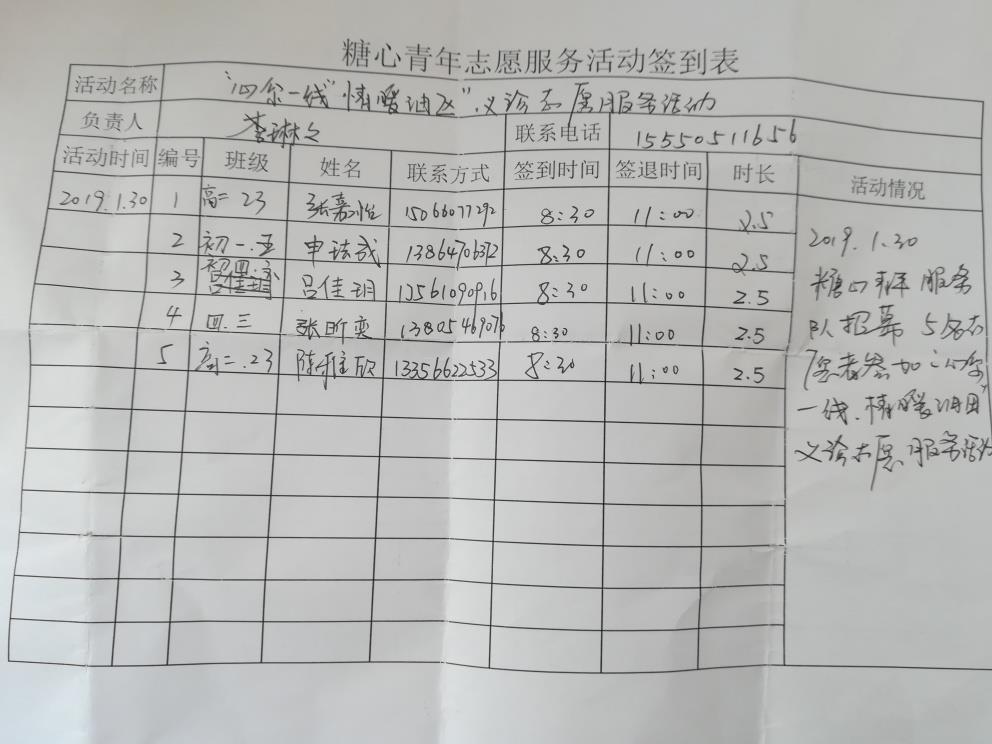 糖心青年志愿服务活动签到表
活动名称 一线"情暖油区"义诊志愿服务活动
负责人 李琳 联系电话 15550511656
活动时间 编号 班级 姓名 联系方式 签到时间 签退时间 时长 活动情况
2019.1.30 1 高二 23 张嘉怡 15066077292 8:30 11:00 2.5
2 初一.五 申珐 13864706372 8:30 11:00 2.5
3 吕佳玥 13561090916 8:30 11:00 2.5
4 四.三 张昕奕 13805469076 8:30 11:00 2.5
5 高二.23 陈雅欣 13356622533 8:30 11:00 2.5
2019.1.30
糖心青年服务
队招募5名志
愿者参加
一线.情暖油田"
义诊志愿服务活动